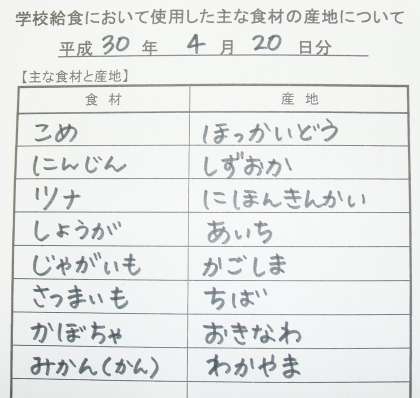 学校給食において使用した主な食材の産地について
平成 30 年 4 月 20 日分
【主な食材と産地】
食材 産地
こめ ほっかいどう
にんじん しずおか
ツナ にほんきんかい
しょうが あいち
じゃがいも かごしま
さつまいも ちば
かぼちゃ おきなわ
みかん(かん) わかやま